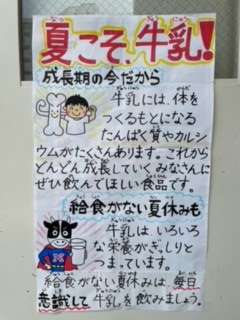 夏こそ、牛乳!
成長期の今だから
牛乳には、体を
つくるもとになる
たんぱく質やカルシ
ウムがたくさんあります。これから
どんどん成長していくみなさんに
ぜひ飲んでほしい食品です。
給食がない夏休みも
牛乳は、いろいろ
な栄養がぎっしりと
つまっています。
給食がない夏休みは、毎日
意識して牛乳を飲みましょう。